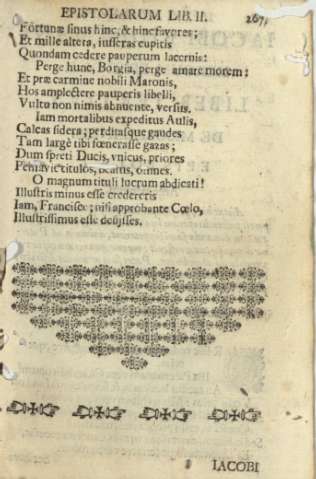 EPISTOLARUM LIB. II. 267
Fortunæ sinus hinc, & hinc favores;
Et mille altera, iusseras cupitis
Quondam cedere pauperum lacernis:
Perge hunc, Borgia, perge amare morem:
Et præ carmine nobili Maronis,
Hos amplectere pauperis libelli,
Vultu non nimis abnuente, versus.
Iam mortalibus expeditus Aulis,
Calcas sidera; perditasque gaudes
Tam largè tibi fœnerasse gazas;
Dum spreti Ducis, vnicus, priores
titulos, beatus, omnes.
O magnum tituli lucrum abdicati!
Illustris minus esse credereris
Iam, Francisce; nisi approbante Cœlo,
Illustrissimus esse desisses.
IACOBI